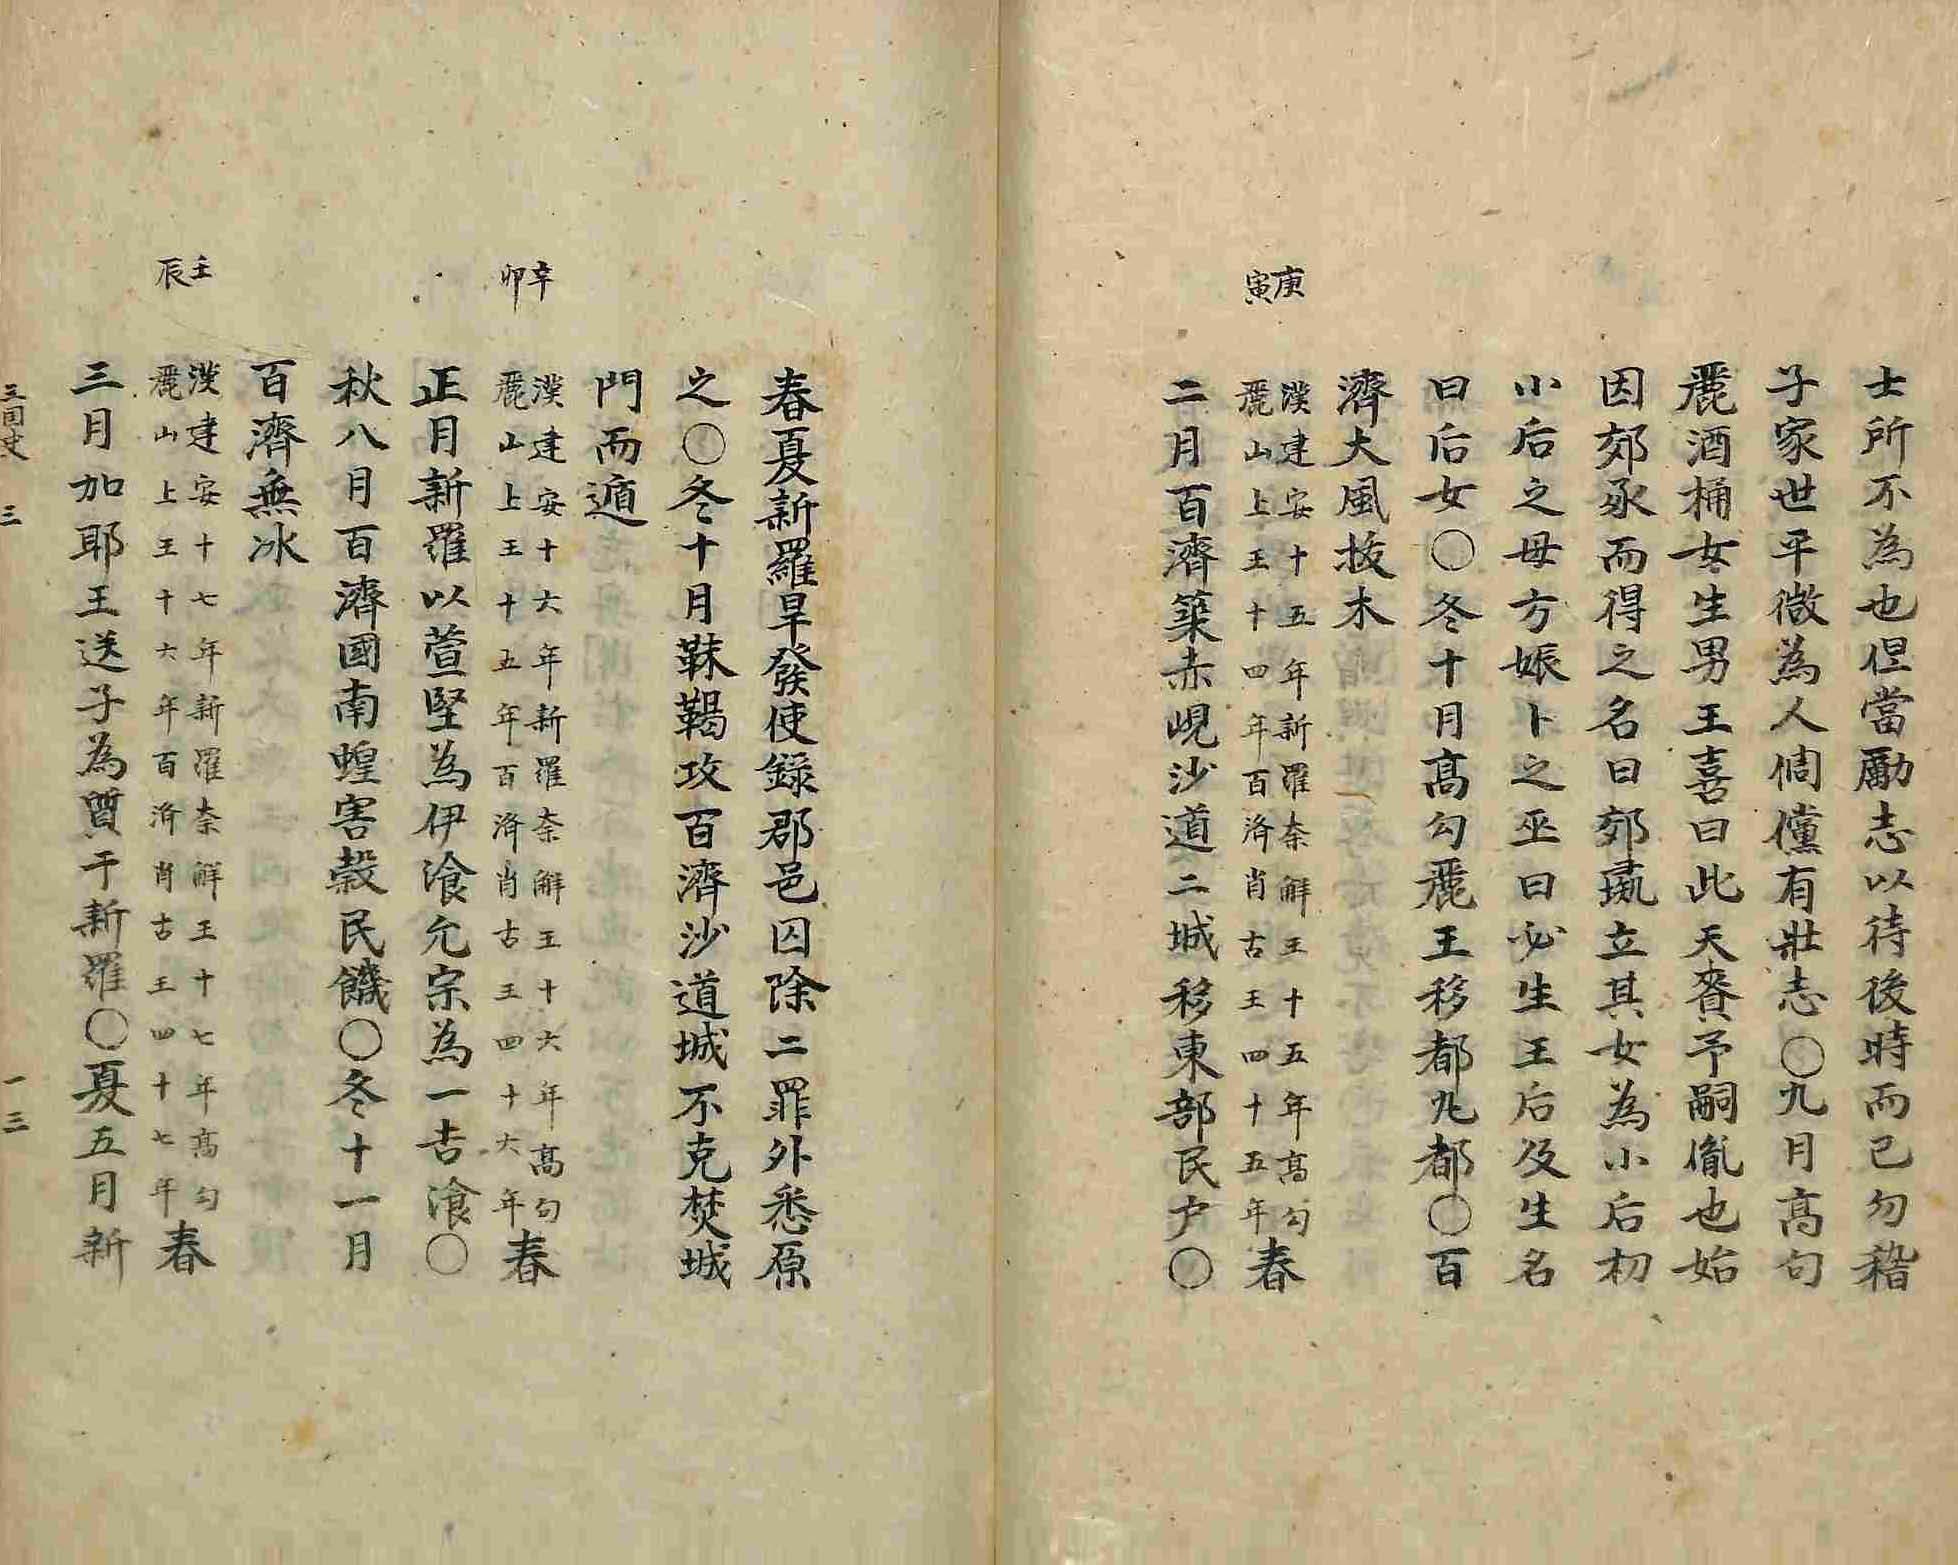 士所不為也但當勵志以待後時而已勿稽
子家世平微為人倜儻有壯志〇九月高句
麗酒桶女生男王喜曰此天賚予嗣胤也始
因郊豕而得之名曰郊彘立其女為小后初
小后之母方娠卜之巫曰必生王后及生名
曰后女〇冬十月高勾麗王移都丸都〇百
濟大風拔木
庚寅
漢建安十五年新羅奈解王十五年高勾
麗山上王十四年百済肖古王四十五年春
二月百濟築赤峴沙道二城移東部民户〇
春夏新羅旱發使錄郡邑囚除二罪外悉原
之〇冬十月靺鞨攻百濟沙道城不克焚城
門而遁
辛卯
漢建安十六年新羅奈解王十六年高勾
麗山上王十五年百済肖古王四十六年春
正月新羅以萱堅為伊飡允宗為一吉飡〇
秋八月百濟國南蝗害穀民饑〇冬十一月
百濟無冰
壬辰
漢建安十七年新羅奈解王十七年高勾
麗山上王十六年百済肖古王四十七年春
三月加耶王送子為質于新羅〇夏五月新
三国史 三 一三